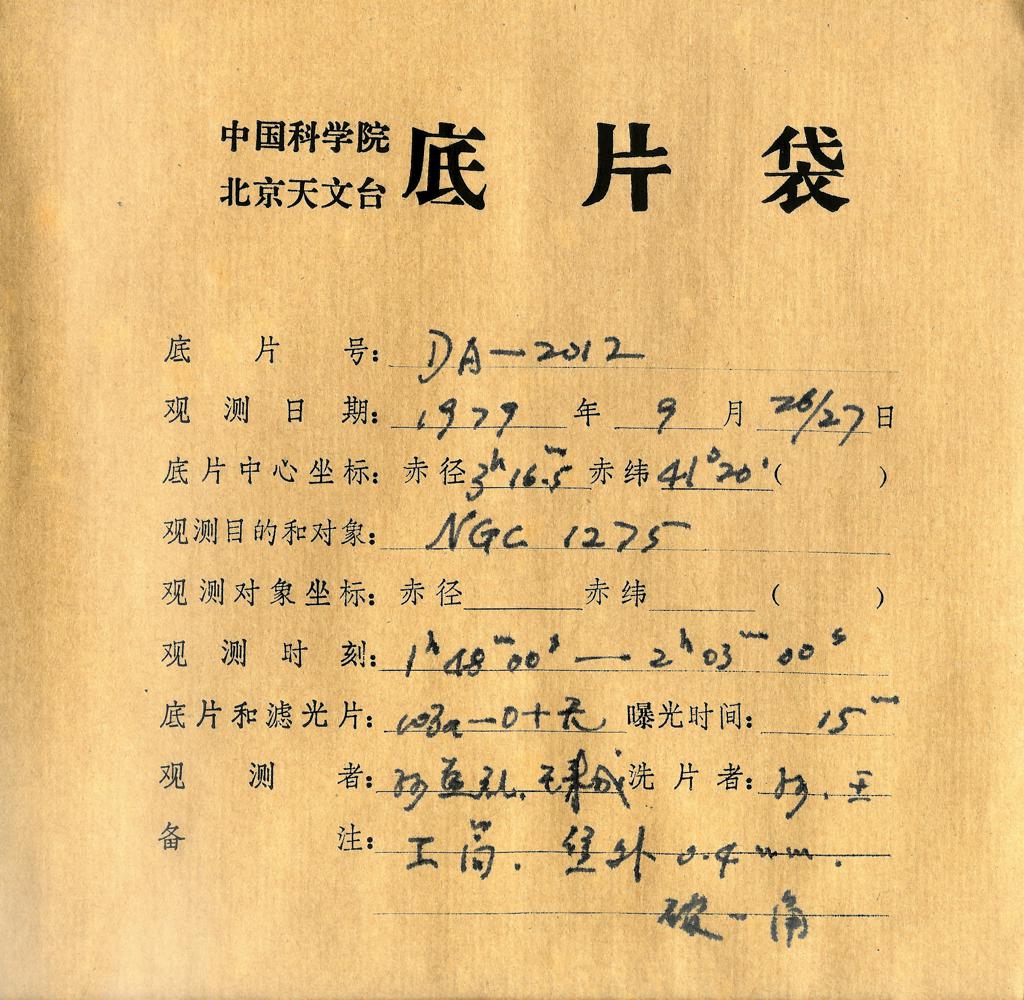 中国科学院
北京天文台
底片袋
底片号: DA-2012
观测日期: 1979年9月26/27日
底片中心坐标: 赤径3ʰ16ᵐ.5 赤纬41°20′( )
观测目的和对象: NGC 1275
观测对象坐标: 赤径 赤纬 ( )
观测时刻: 1ʰ48ᵐ00ˢ — 2ʰ03ᵐ00ˢ
底片和滤光片: 103a-O+无 曝光时间: 15ᵐ
观测者: 洗片者: 孙、王
备注: 焦外0.4mm.
破一角